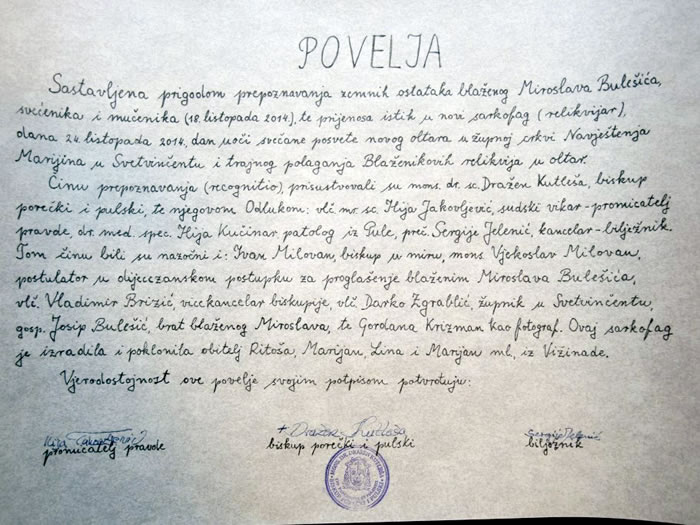 POVELJA
Sastavljena prigodom prepoznavanja zemnih ostataka blaženog Miroslava Bulešića,
svećenika i mučenika (18. listopada 2014.), te prijenosa istih u novi sarkofag (relikvijar),
dana 24. listopada 2014., dan uoči svečane posvete novog oltara u župnoj crkvi Navještenja
Marijina u Svetvinčentu i trajnog polaganja Blaženikovih relikvija u oltar.
Činu prepoznavanja (recognitio) prisustvovali su mons. dr. sc. Dražen Kutleša, biskup
porečki i pulski, te njegovom Odlukom: vlč. mr. sc. Ilija Jakovljević, sudski vikar - promicatelj
pravde, dr. med. spec. Ilija Kučinar patolog iz Pule, preč. Sergije Jelenić, kancelar - bilježnik.
Tom činu bili su nazočni i: Ivan Milovan, biskup u miru, mons. Vjekoslav Milovan,
postulator u dijecezanskom postupku za proglašenje blaženim Miroslava Bulešića,
vlč. Vladimir Brizić vicekancelar biskupije, vlč. Darko Zgrablić, župnik u Svetvinčentu,
gosp. Josip Bulešić, brat blaženog Miroslava, te Gordana Krizman kao fotograf. Ovaj sarkofag
je izradila i poklonila obitelj Ritoša, Marijan, Lina i Marijan ml. iz Vižinade.
Vjerodostojnost ove povelje svojim potpisom potvrđuju:
+ Dražen Kutleša Sergije Jelenić
promicatelj pravde biskup porečki i pulski bilježnik